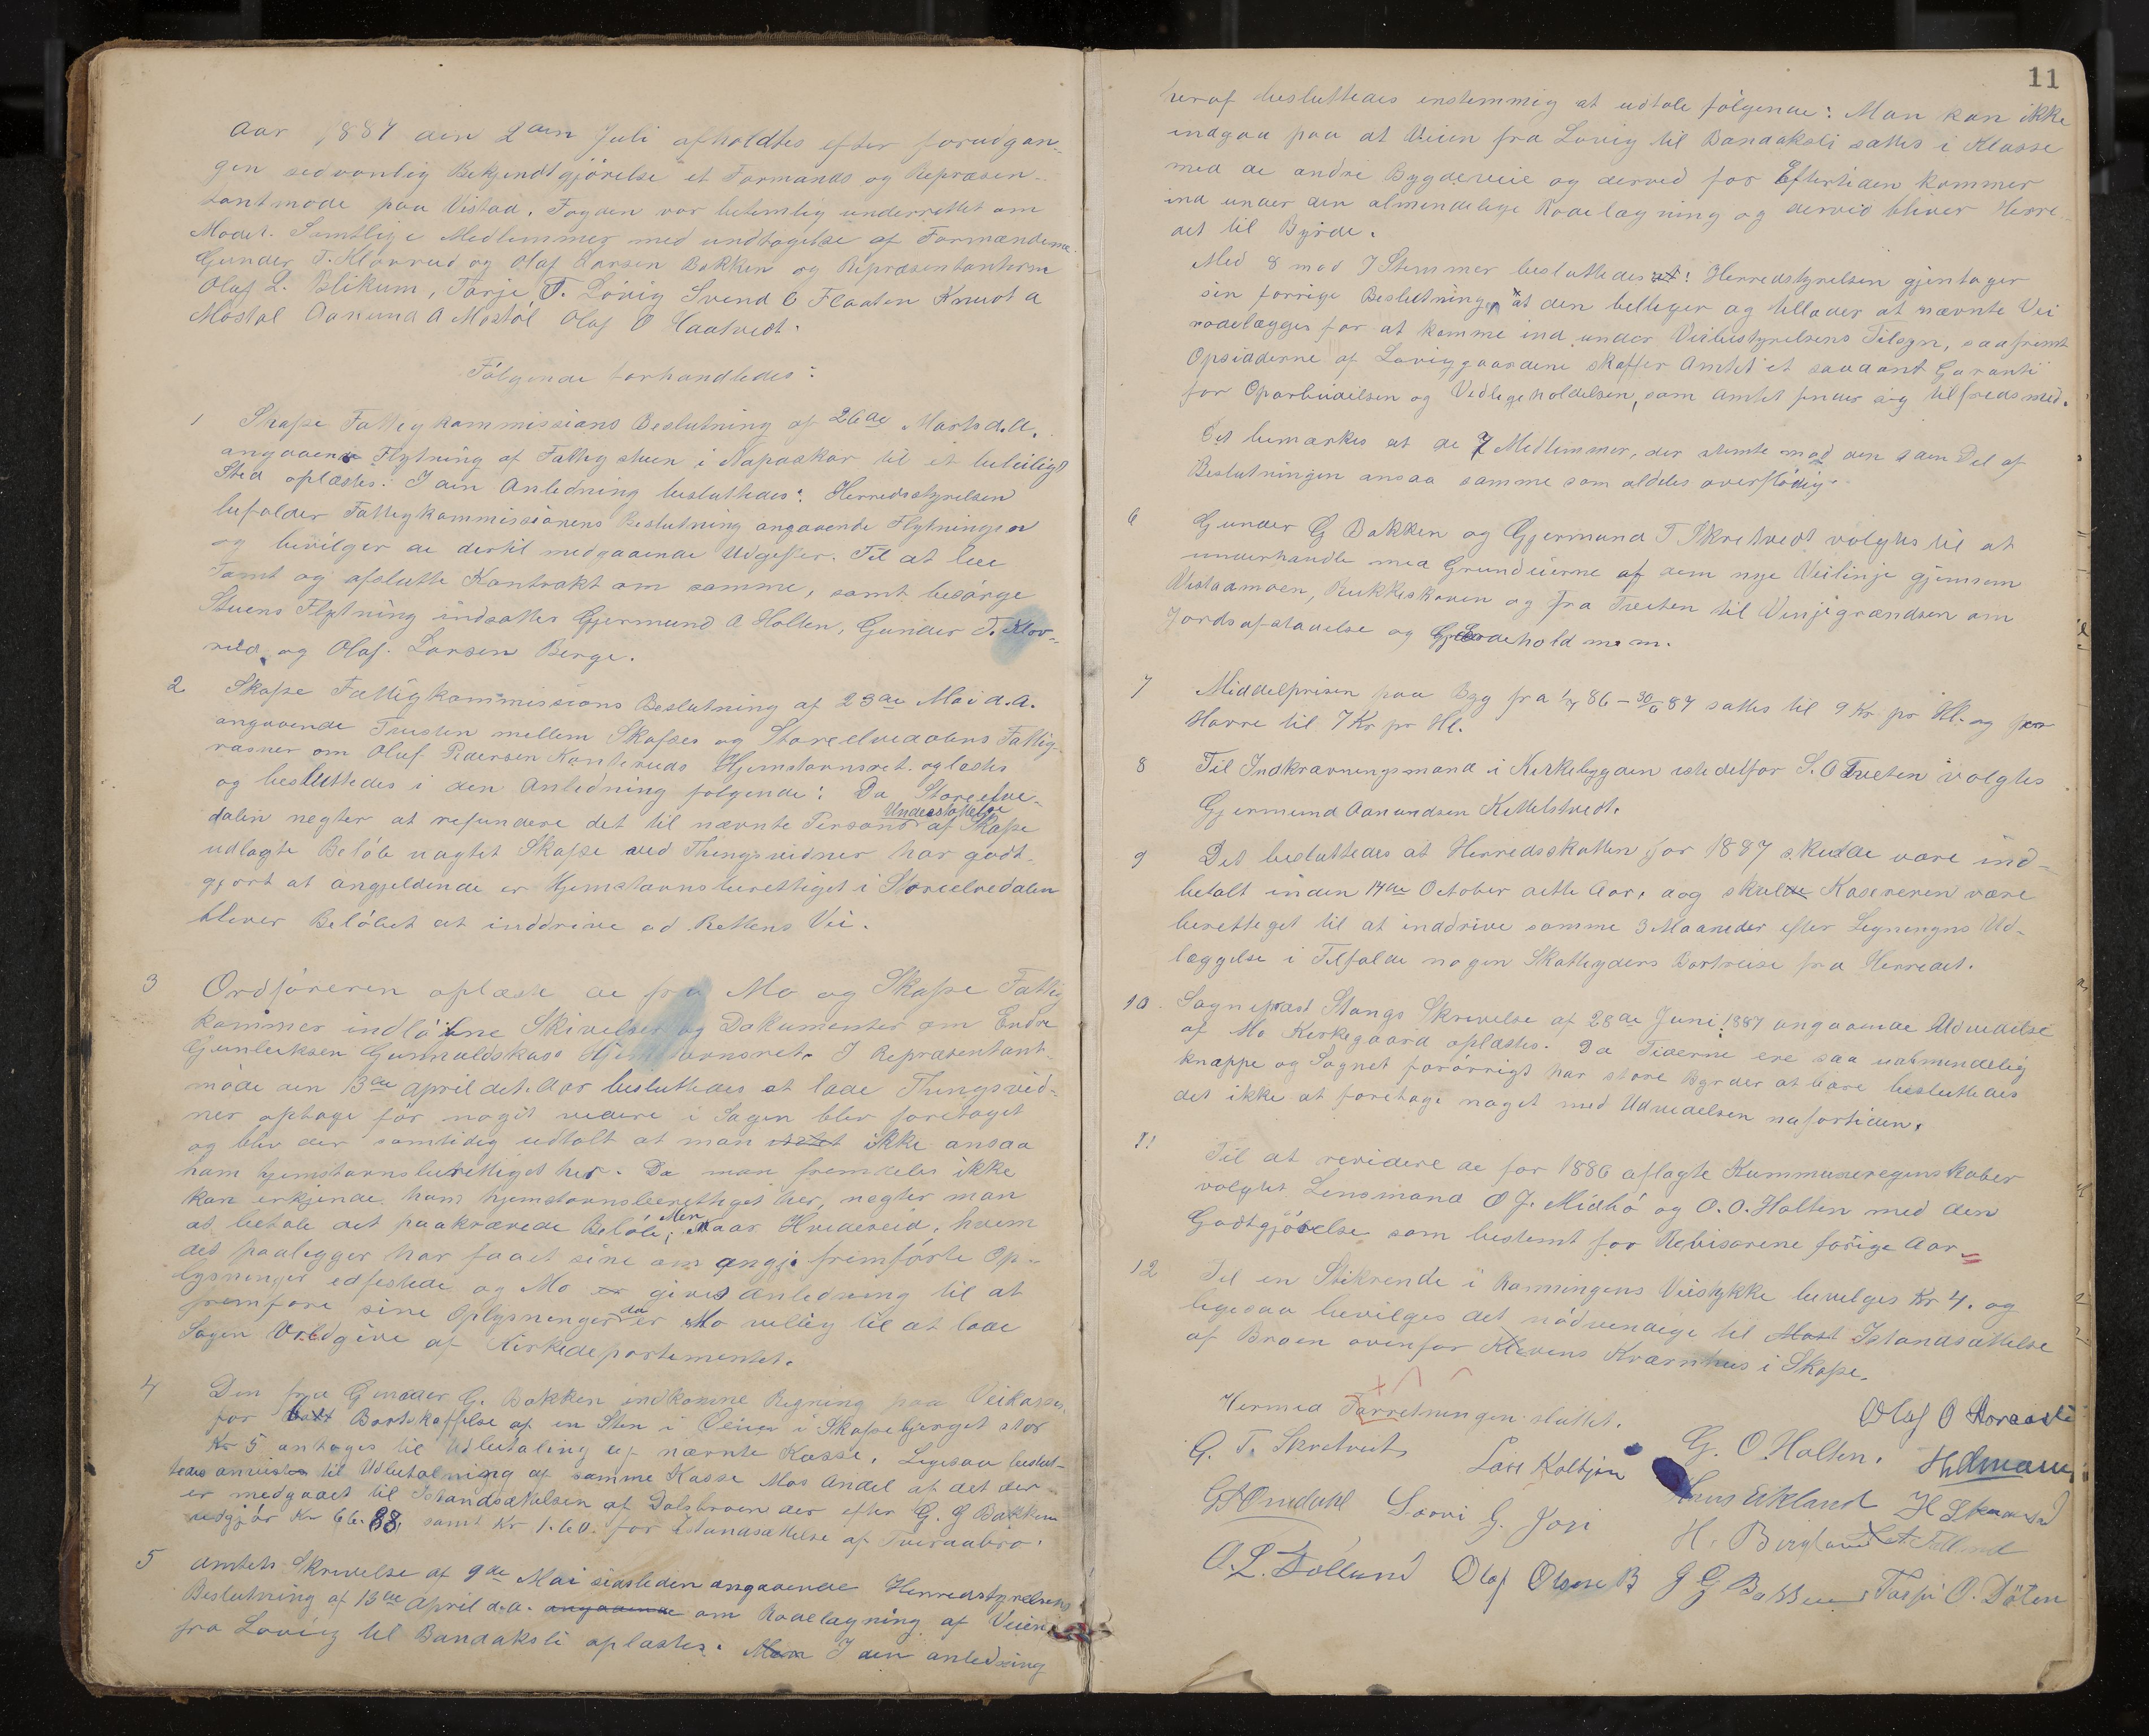 Aar 1887 den 2den Juli afholdtes efter forudgan-
gen sedvanlig Bekjendtgjörelse et Formands og Repræsen-
tantmøde paa Vistad. Fogden var betimlig underrettet om
Mødet. Samtlige Medlemmer med undtagelse af Formændene
Gunder T. Klovrud og Olaf Larsen Bakken og Repræsentanterne
Olaf L. Blikum, Tarje T. Lövig Svend O Flaaten Knudt A
Mostøl Aanund A Mostöl Olaf O Haatvedt.
Fölgende forhandledes:
1 Skafse Fattigkommissions Beslutning af 26de Marts d.A.
angaaende Flytning af Fattigstuen i Napaskar til et beleiligt
Sted oplæstes. I den Anledning besluttedes: Herredsstyrelsen
bifalder Fattigkommissionens Beslutning angaaende Flytningen
og bevilger de dertil medgaaende Udgifter. Til at leie
Tomt og afslutte Kontrakt om samme, samt besörge
Stuens Flytning indsattes Gjermund A Holten, Gunder T. Klov-
rud og Olaf Larsen Berge.
2 Skafse Fattigkommissions Beslutning af 23de Mai d.A.
angaaende Tvisten mellem Skafses og Storeelvedalens Fattig-
væsner om Oluf Pedersen Kanteruds Hjemstavnsret oplæstes
og besluttedes i den Anledning følgende: Da Storeelve-
dalen negter at refundere det til nævnte Persons Understøttelse af Skafse
udlagte Beløb uagtet Skafse ved Thingsvidner har godt-
gjort at angjeldende er Hjemstavnsberettiget i Storeelvedalen
bliver Belöbet at inddrive ad Rettens Vei.
3 Ordföreren oplæste de fra Mo og Skafse Fattig
kommer indlöbne Skrivelser og Dokumenter om Endre
Gunleiksen Gunnuldskaas Hjemstavnsret. I Repræsentant-
möde den 13de April det. Aar besluttedes at lade Thingsvid-
ner optage för noget videre i Sagen blev foretaget
og blev der samtidig udtalt at man ikke ansaa
ham hjemstavnsberettiget her. Da man fremdeles ikke
kan erkjende ham hjemstavnsberettiget her, negter man
at betale det paakrævede Belöb; Men naar Hvideseid, hvem
det paalegger har faaet sine om angj. fremförte Op-
lysninger edfestede og Mo gives Anledning til at
fremføre sine Oplysninger da er Mo villig til at lade
Sagen Voldgive af Kirkedepartementet.
4 Den fra Gunder G. Bakken indkomne Regning paa Veikassen
for Bortskaffelse af en Sten i Veien i Skafsebjerget stor
Kr 5 antages til Udbetaling af nævnte Kasse. Ligesaa beslut-
tedes anvist til Udbetalning af samme Kasse Mos Andel af det der
er medgaaet til Istandsættelsen af Dalsbroen der efter G. G Bakken
udgjör Kr 66.88, samt Kr 1.60 for Istandsættelse af Tveraabro.
5 Amtets Skrivelse af 9de Mai sidstleden angaaende Herredstyrelsens
Beslutning af 13de April d.A. angaaende om Rodelægning af Veien
fra Lövig til Bandaksli oplæstes. Man I den anledning
11
heraf besluttedes enstemmig at udtale fölgende: Man kan ikke
indgaa paa at Veien fra Lövig til Bandaksli sattes i Klasse
med de andre Bygdeveie og derved for Eftertiden kommer
ind under den almendelige Rodelægning og derved bliver Herre-
det til Byrde.
Med 8 mod 7 Stemmer besluttedes at: Herredstyrelsen gjentager
sin forrige Beslutning, at den billiger og tillader at nævnte Vei
rodelægges for at komme ind under Veibestyrelsens Tilsyn, saafremt
Opsidderne af Løviggaardene skaffer Amtet et saadant Garanti
for Oparbeidelsen og Vedligeholdelsen, som Amtet finder sig tilfreds med.
Det bemærkes at de 7 Medlemmer, der stemte mod den 2den Del af
Beslutningen ansaa samme som aldeles overflödig.
6 Gunder G Bakken og Gjermund T Skretvedt valgtes til at
underhandle med Grundeierne af den nye Veilinje gjennem
Vistadmoen, Kukkeskoven og fra Tveiten til Vinjegrændsen om
Jordsafstaaelse og Gjerdehold m.m.
7 Middelprisen paa Byg fra 1/7 86 – 30/6 87 sattes til 9 Kr pr Hl. og for
Havre til 7 Kr pr Hl.
8 Til Indkrævningsmand i Kirkebygden istedetfor S. O Tveiten valgtes
Gjermund Aanundsen Kittelstvedt.
9 Det besluttedes at Herredsskatten for 1887 skulde være ind-
betalt inden 14de October dette Aar, dog skulde Kasereren være
berettiget til at inddrive samme 3 Maaneder efter Ligningens Ud-
læggelse i Tilfælde nogen Skatteyders Bortreise fra Herredet.
10. Sognepræst Stangs Skrivelse af 28de Juni 1887 angaaende Udvidelse
af Mo Kirkegaard oplæstes. Da Tiderne ere saa ualmindelig
knappe og Sognet forövrigt har store Byrder at bære besluttedes
det ikke at foretage noget med Udvidelsen naførtiden.
11 Til at revidere de for 1886 aflagte Kommuneregnskaber
valgtes Lensmand O J. Midbö og O. O. Holten med den
Godtgjörelse som bestemt for Revisorene forige Aar.
12 Til en Stikrende i Ramningens Veistykke bevilges Kr 4. og
ligesaa bevilges det nödvendige til Istandsættelse
af Broen ovenfor Klevens Kværnhus i Skafse.
Hermed Forretningen sluttet.
Olaf O Moraasli
G. T. Skretveit G. O. Holten.
Hans Ekland
G S Omdahl Sveni G. Jore
H. Bergland
O. L. Dollund Olaf Olsen B G G Bakken Tarje O. Döten